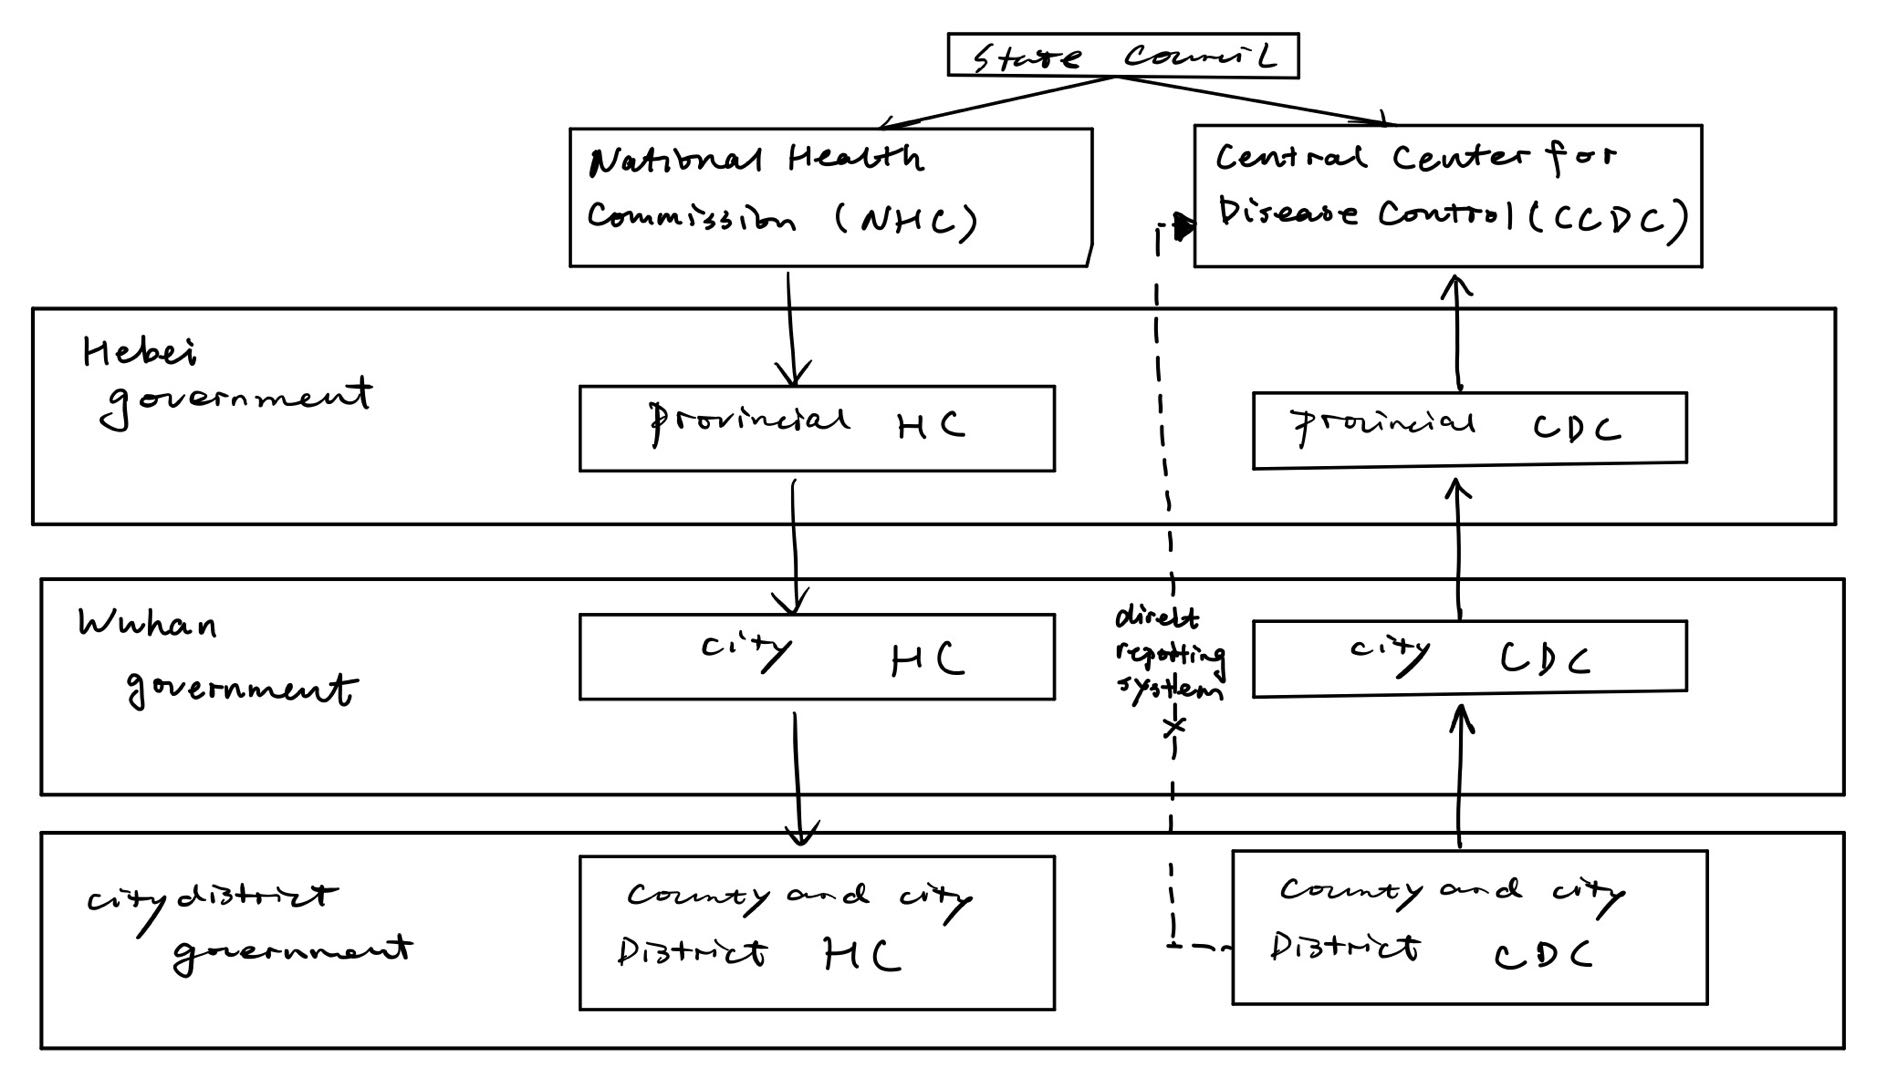 State Council
National Health
Commission (NHC)
Central Center for
Disease Control (CCDC)
Hebei
government
Provincial HC
Provincial CDC
Wuhan
government
city HC
direct
reporting
system
city CDC
city district
government
County and city
District HC
County and city
District CDC